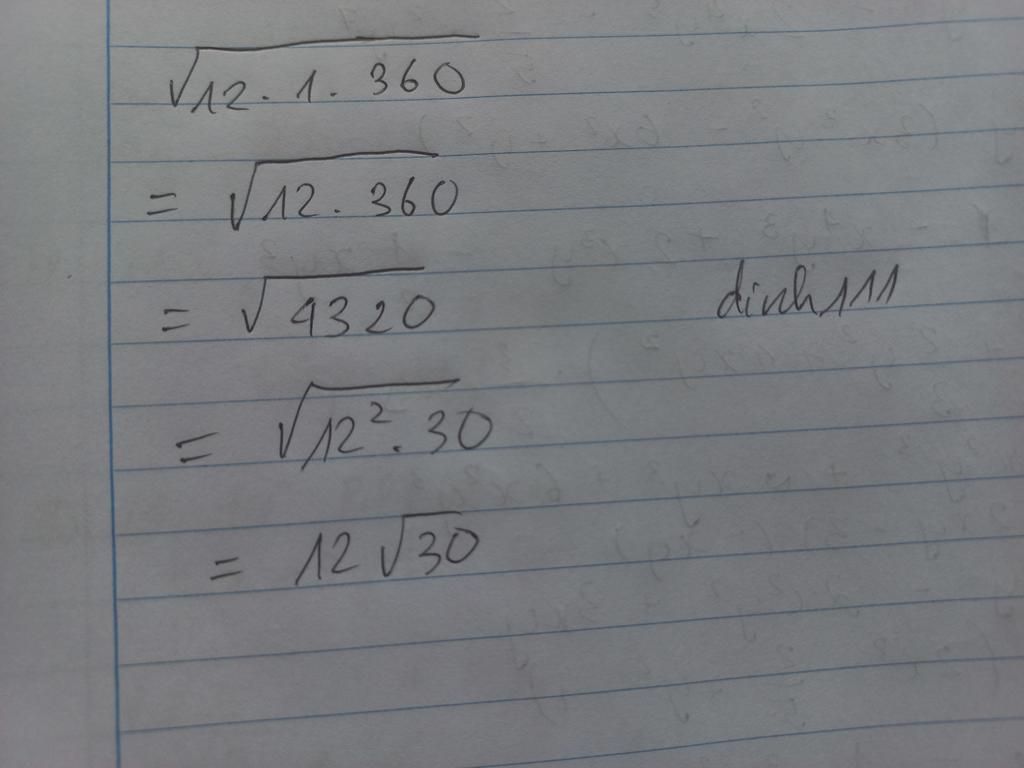 √12 . 1 . 360
= √12 . 360
= √4320
dinh111
= √12² . 30
= 12 √30